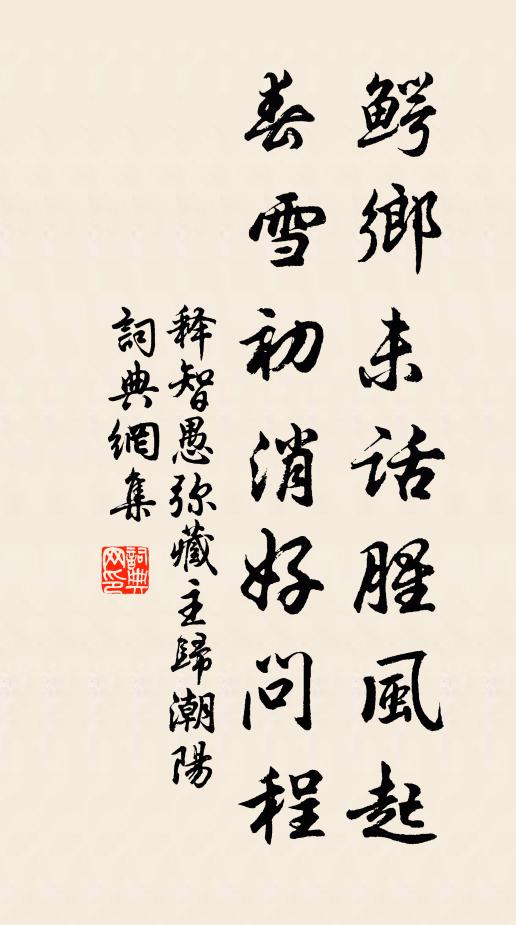 鰐鄉未話腥風起
春雪初消好問程
释智愚弥藏主歸潮陽
詞典網集
詞典网印